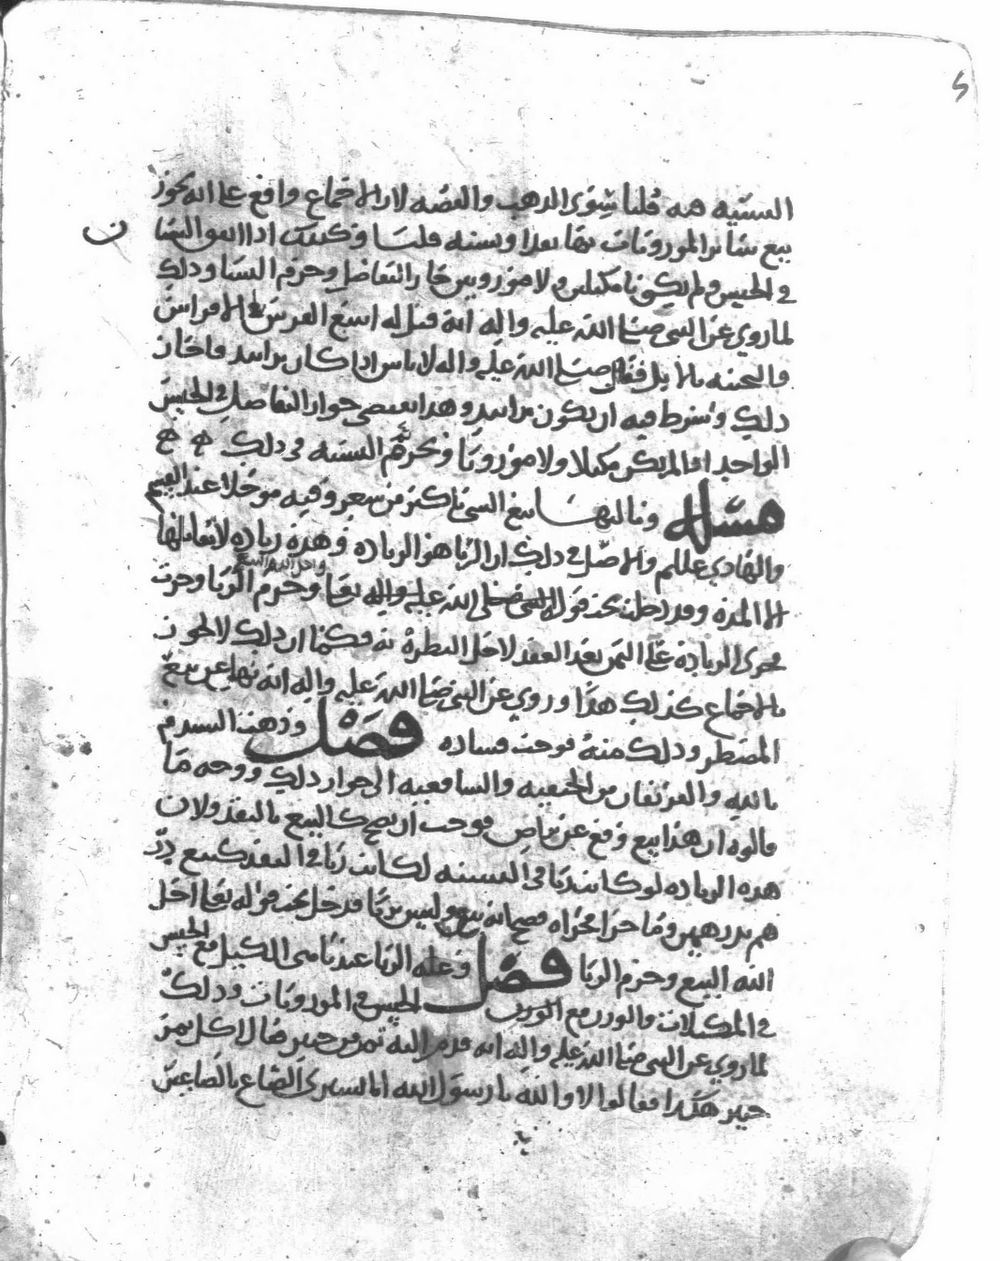 النسيه فيه قلنا سوى الذهب والفضه لان الاجماع واقع على انه يجوز
بيع سائر الموزونات بهما نقدا ونسيه قلنا وكذلك اذا اتفق الشيئان
في الجنس ولم يكونا مكيلين ولا موزونين جاز التفاضل وحرم النسا وذلك
لما روي عن النبي صلى الله عليه واله انه قيل له ابتيع الفرس بالافراس
والبختيه بالابل فقال صلى الله عليه واله لا باس اذا كان يدا بيد فاجاز
ذلك وشرط فيه ان يكون يدا بيد وهذا يقتضي جواز التفاضل في الجنس
الواحد اذا لم يكن مكيلا ولا موزونا وتحريم النسيه في ذلك ه ه
مسئله وثالثها بيع الشي باكثر من سعر يومه مؤجلا عند القسم
والهادي عللم والاصل في ذلك ان الربا هو الزياده وهذه زياده لا يقابلها
الا المده وقد دخلت تحت قول الله تعالى واحل الله البيع وحرم الربا وجرت
مجرى الزياده على الثمن بعد العقد لاجل النظره به فكما ان ذلك لا يجوز
بالاجماع كذلك هذا وروي عن النبي صلى الله عليه واله انه نهى عن بيع
المضطر وذلك منه فوجب فساده فصل وذهب السيد م
بالله والفريقان من الحنفيه والشافعيه الى جواز ذلك ووجه ما
قالوه ان هذا بيع وقع عن تراض فوجب ان يصح كالبيع بالنقد ولان
هذه الزياده لو كانت ربا في النسيئه لكانت ربا في النقد كبيع در
هم بدرهمين وما جرا مجراه فصح انه بيع وليس بربا فدخل تحت قوله تعالى احل
الله البيع وحرم الربا فصل وعله الربا عندنا هي الكيل مع الجنس
في المكيلات والوزن مع الجنس في الموزونات وذلك
لما روي عن النبي صلى الله عليه واله انه قدم اليه تمر من خيبر فقال اكل تمر
خيبر هكذا فقالوا لا والله يا رسول الله انا لنشتري الصاع بالصاعين